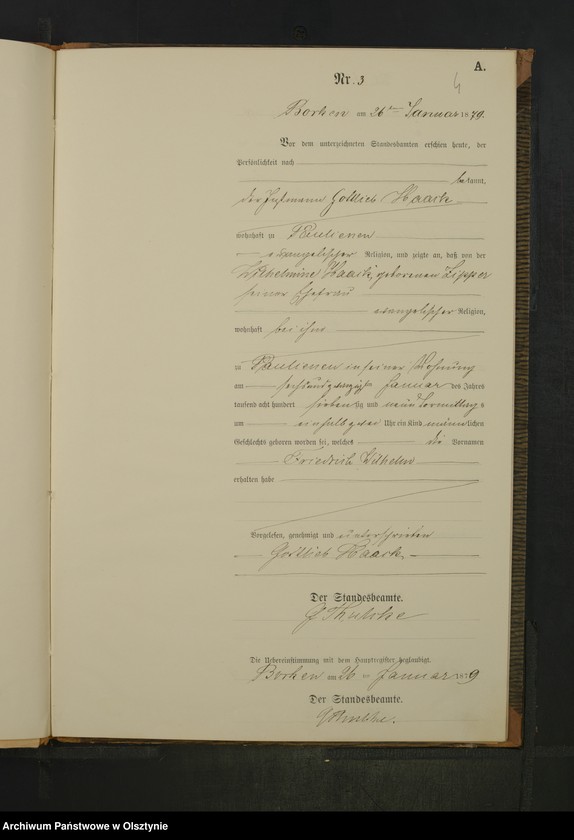 A.
Nr. 3
4
Borken am 26ten Januar 1879.
Vor dem unterzeichneten Standesbeamten erschien heute, der
Persönlichkeit nach
bekannt,
der Gottlieb Haack
wohnhaft zu Paulienen
evangelischer Religion, und zeigte an, daß von der
Wilhelmine Haack, geborenen Zipper
seiner Ehefrau
evangelischer Religion,
wohnhaft bei ihm
zu Paulienen in seiner Wohnung
am Januar des Jahres
tausend acht hundert siebenzig und neun Vormittags
um Uhr ein Kind männlichen
Geschlechts geboren worden sei, welches die Vornamen
Friedrich Wilhelm
erhalten habe
Vorgelesen, genehmigt und unterschrieben
Gottlieb Haack
Der Standesbeamte.
Die Uebereinstimmung mit dem Hauptregister beglaubigt.
Borken am 26 ten Januar 1879
Der Standesbeamte.
Archiwum Państwowe w Olsztynie